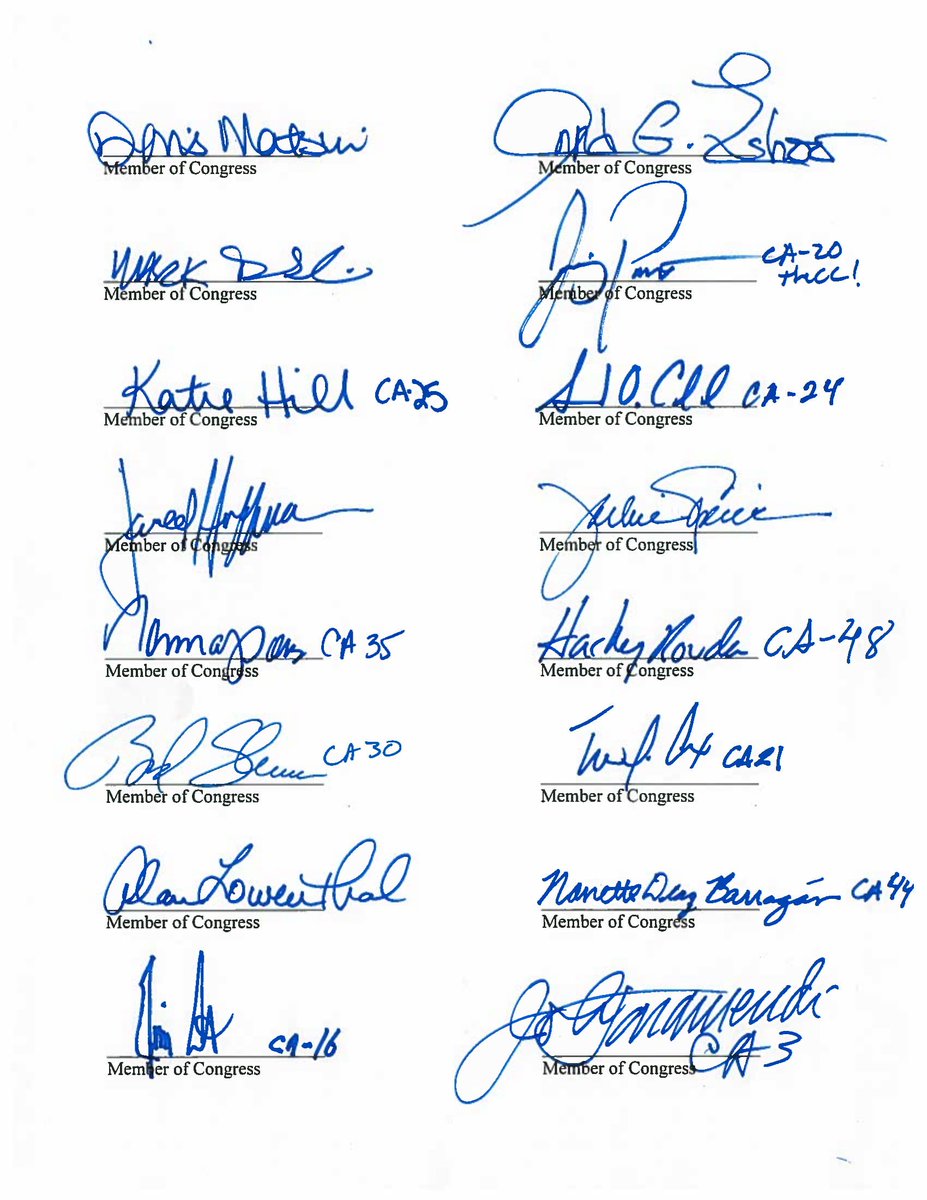 Doris Matsui Anna G. Eshoo
Member of Congress Member of Congress
Mark DeS Jimmy Panetta CA-20
THCC!
Member of Congress Member of Congress
Katie Hill CA-25 CA-24
Member of Congress Member of Congress
Jared Huffman Jackie Speier
Member of Congress Member of Congress
Norma J Torres CA 35 Harley Rouda CA-48
Member of Congress Member of Congress
Brad Sherman CA 30 TJ Cox CA 21
Member of Congress Member of Congress
Alan Lowenthal Nanette Diaz Barragán CA 44
Member of Congress Member of Congress
CA-16 Jo Garamendi
CA 3
Member of Congress Member of Congress